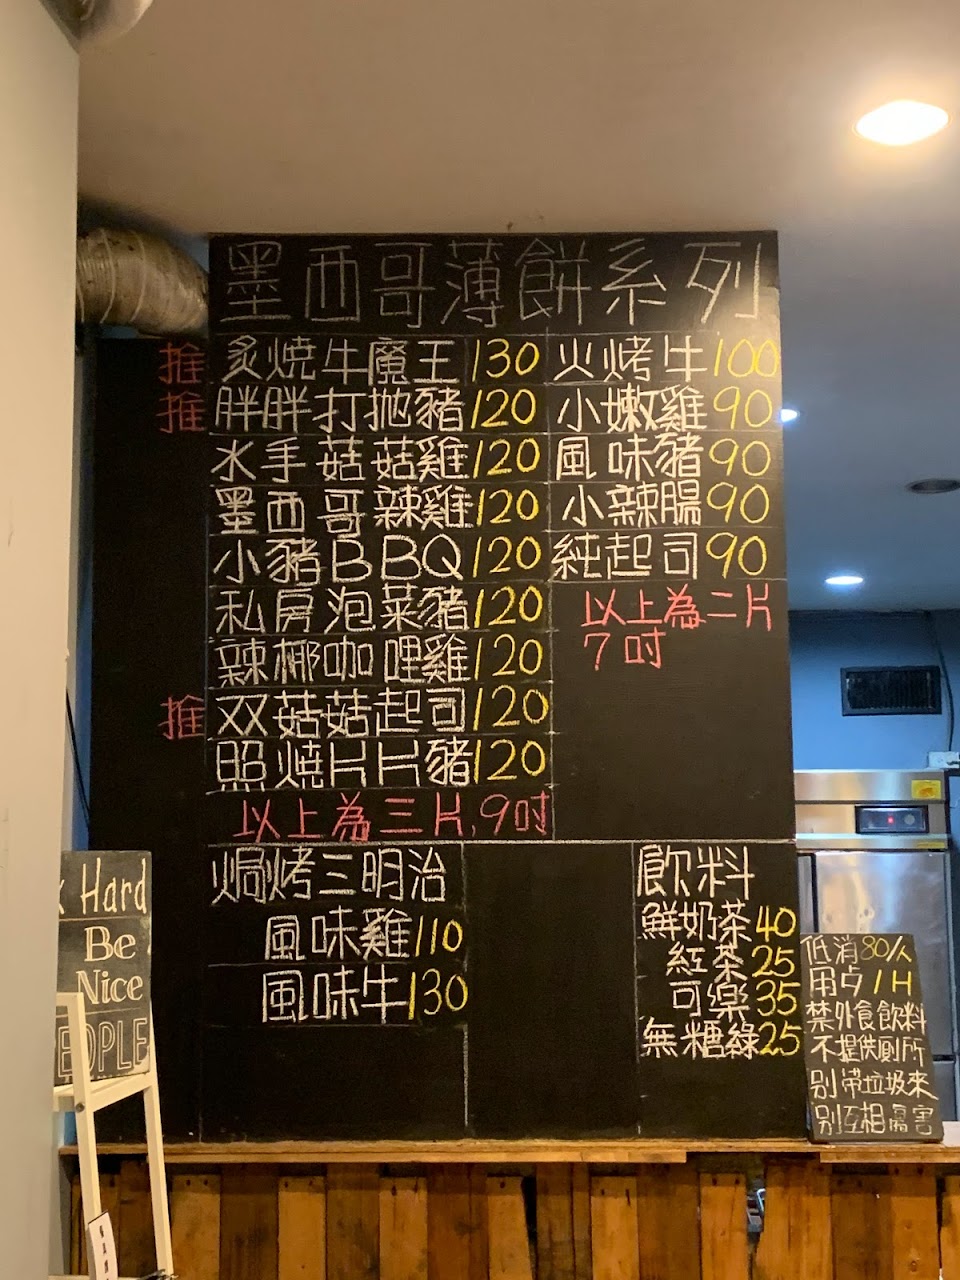 墨西哥薄餅系列
推 炙燒牛魔王130
推 胖胖打拋豬120
水手菇菇雞120
墨西哥辣雞120
小豬BBQ120
私房泡菜豬120
辣椰咖哩雞120
推 双菇菇起司120
照燒片片豬120
以上為三片,9吋
火烤牛100
小嫩雞90
風味豬90
小辣腸90
純起司90
以上為二片
7吋
焗烤三明治
風味雞110
風味牛130
飲料
鮮奶茶40
紅茶25
可樂35
無糖綠25
Hard
Be
Nice
EOPLE
低消80/人
用占1H
禁外食飲料
不提供廁所
別帶垃圾來
別互相傷害